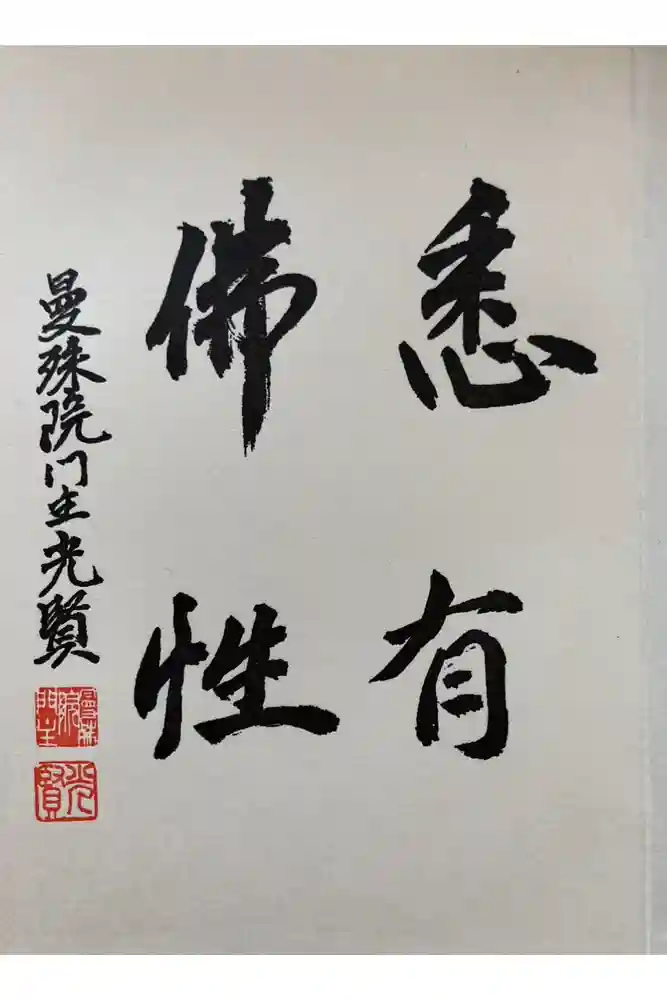 悉有
佛性
曼殊院门主光賢
曼殊院門主
光賢